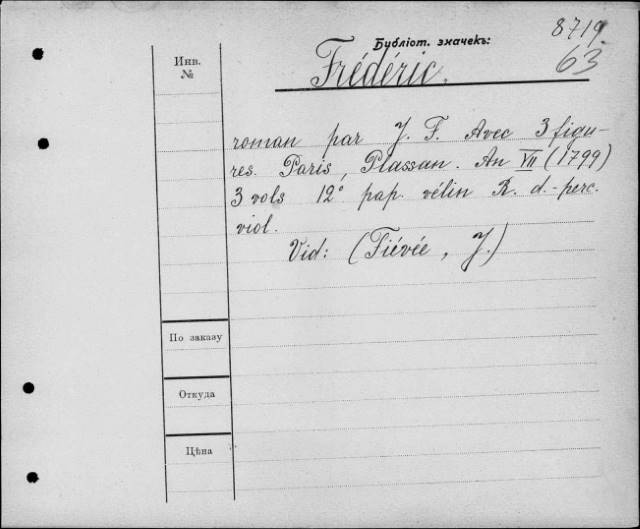 8719.
Бубліот. значекъ:
63
Инв.
№
Frédéric.
roman par J. F. Avec 3 figu-
res. Paris, Plassan. An VII (1799)
3 vols 12° pap. vélin R. d.-perc.
viol.
Vid: (Fiévée, J.)
По заказу
Откуда
Цѣна